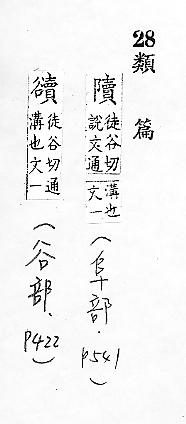 28 類篇
𨽍 徒谷切
說文通
溝也
文一
(阜部. p541)
豄 徒谷切通
溝也文一
(谷部. p422)